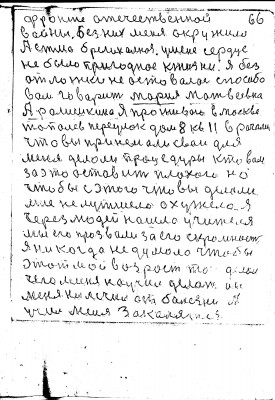 66
фронте отечественной
войны. Без них меня окружило
Астма бронхиальная, у меня сердце
не было пригодное к жизни. Я без
отложки не оставалас способо
вам говорит Мария Матвеевна
Аралишкина Я проживаю в Москве
тополев переулок дом 8 кв 11 в
чтобы принемали сваи для
меня делали процедуры кто вам
за это оставит плохого но
чтобы с этого чтовы делали
мне не лутшело а хужела я
через людей нашла учителя
мы его прозвали за его скромность
я никогда не думала чтобы
этот мой возрост то делал
чего меня научил делать
меня вылечил от балезни и
учил меня Закалятся.